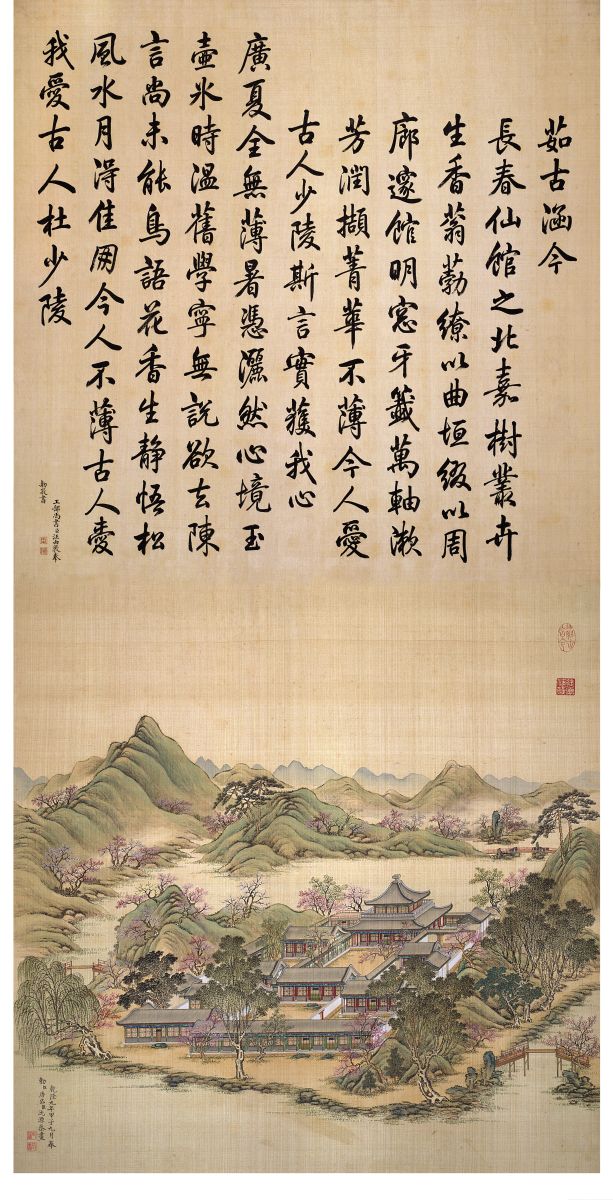 茹古涵今
長春仙館之北嘉樹叢卉
生香蓊葧繚以曲垣綴以周
廊邃館明窓牙籤萬軸漱
芳潤擷菁華不薄今人愛
古人少陵斯言實獲我心
廣夏全無薄暑憑灑然心境玉
壺氷時温舊學寧無説欲去陳
言尚未能鳥語花香生静悟松
風水月淂佳朋今人不薄古人愛
我愛古人杜少陵
工部尚書臣汪由敦奉
勅敬書
乾隆九年甲子九月奉
勅臣唐岱臣沈源恭畫